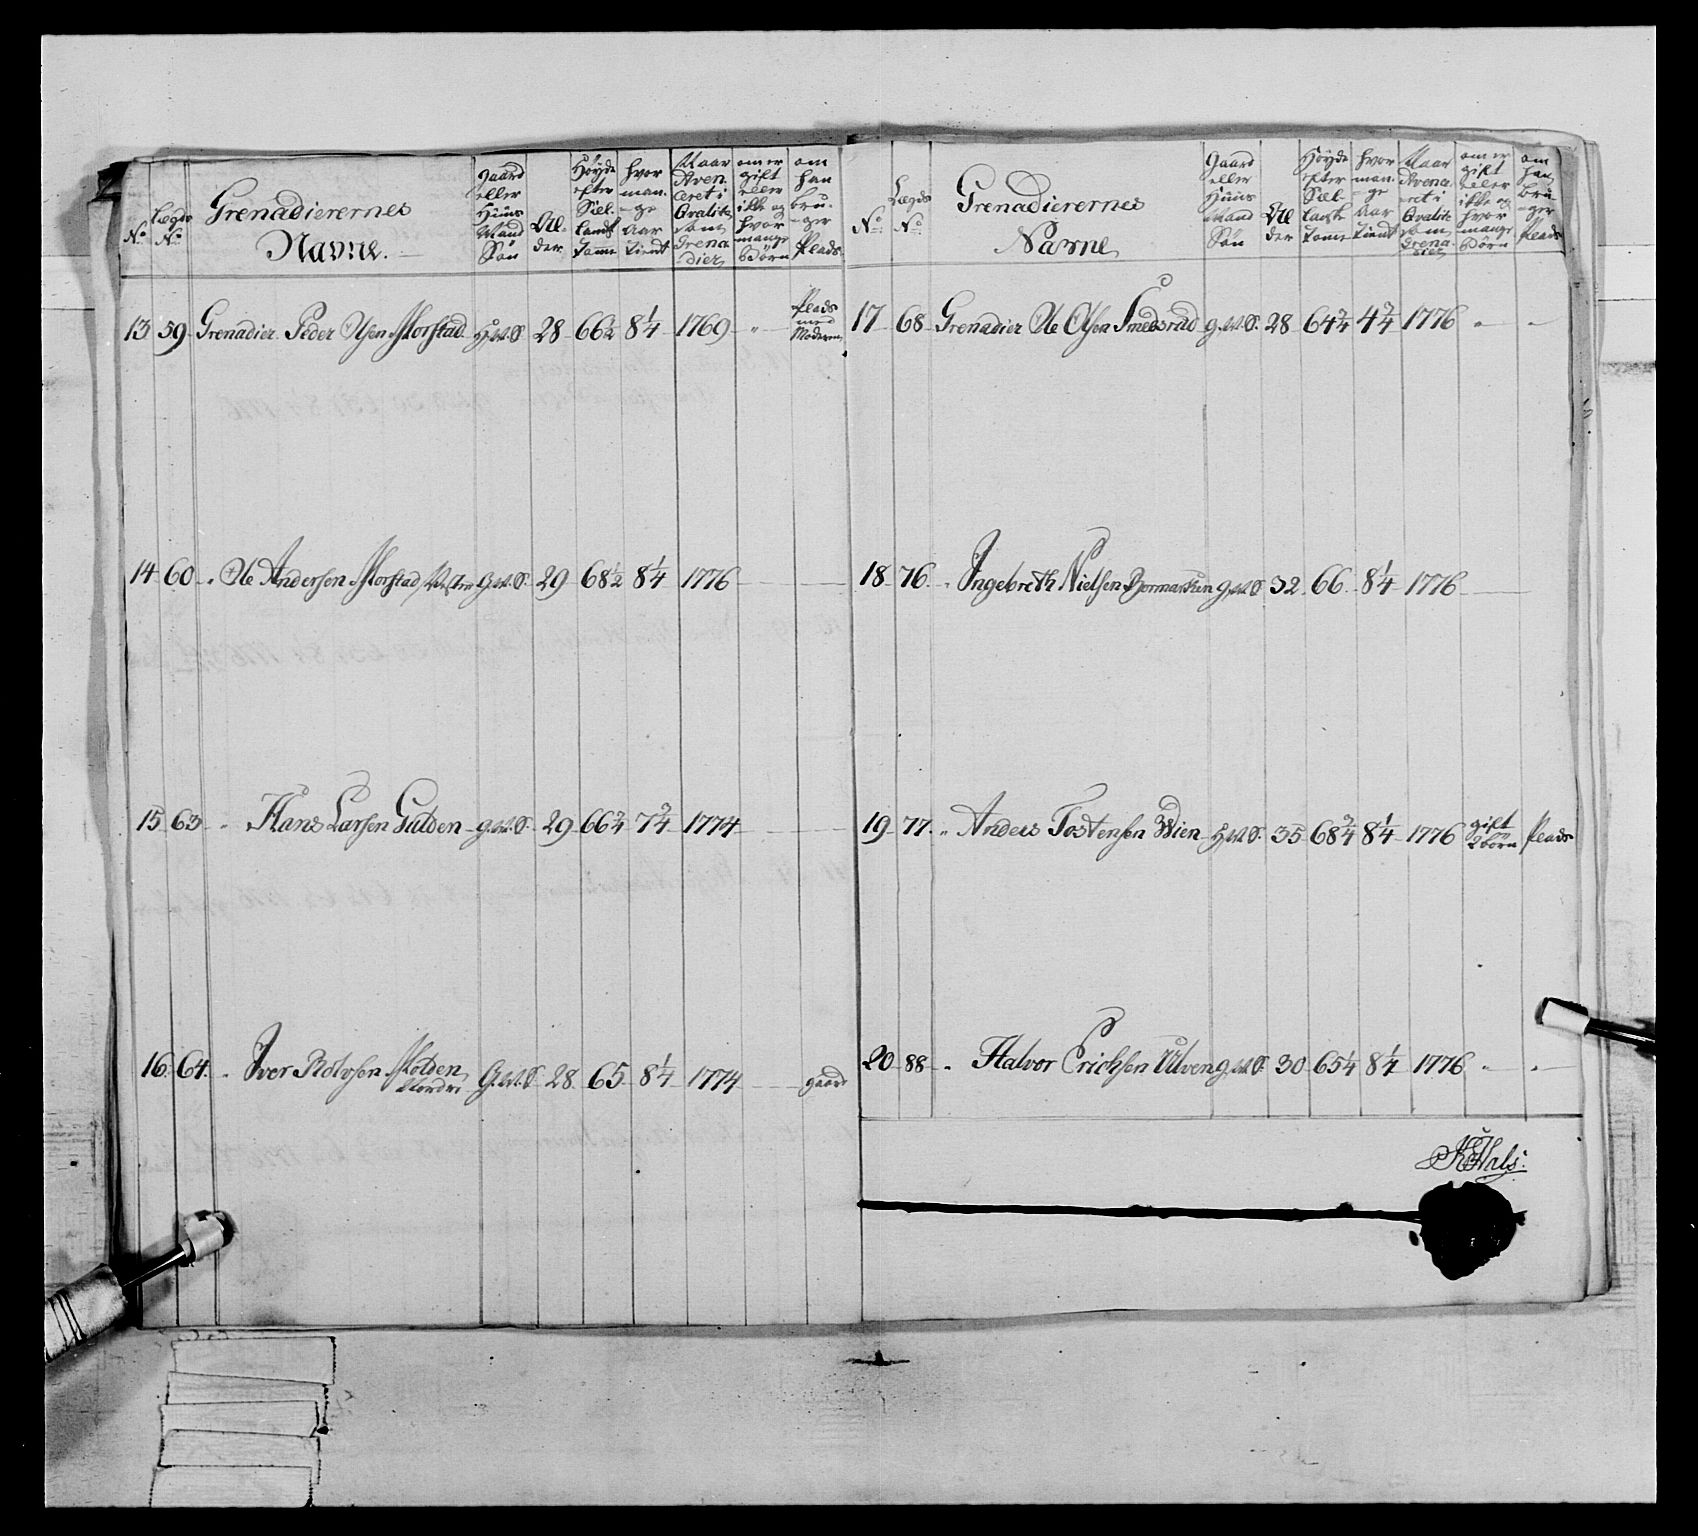 No.
Lægds No.
Grenadierernes Navne.
Gaard eller Huus Mand Søn
Alder
Høyde efter Siellandsk Tomme
hvor mange Aar tient
Naar Avenceret i Qvalite som Grenadier
om er gift eller ikke og hvor mange Børn
om han bruger Plads
13 59 Grenadier Peder Olsen Morstad H.M.S. 28 66½ 8¼ 1769 " Plads med Moderen
14 60 " Ole Andersen Morstad Vestre G.M.S. 29 68½ 8¼ 1776
15 63 " Hans Larsen Gulden g.M.S. 29 66¾ 7¾ 1774
16 64 " Iver Rolvsen Molden Nordre G.M.S. 28 65 8¼ 1774 gaard
No.
Lægds No.
Grenadierernes Navne
Gaard eller Huus Mand Søn
Alder
Høyde efter Siellandsk Tomme
hvor mange Aar tient
Naar Avenceret i Qvalite som Grenadier
om er gift eller ikke og hvor mange Børn
om han bruger Plads
17 68 Grenadier Ole Olsen Smedsrud g.M.S. 28 64¾ 4¾ 1776 "
18 76 " Ingebreth Nielsen g.M.S. 32 66 8¼ 1776
19 77 " Anders Tostensen Wien H.M.S. 35 68¾ 8¼ 1776 gift 2 børn Plads
20 88 " Halvor Erichsen Ulven g.M.S. 30 65¼ 8¼ 1776 " "